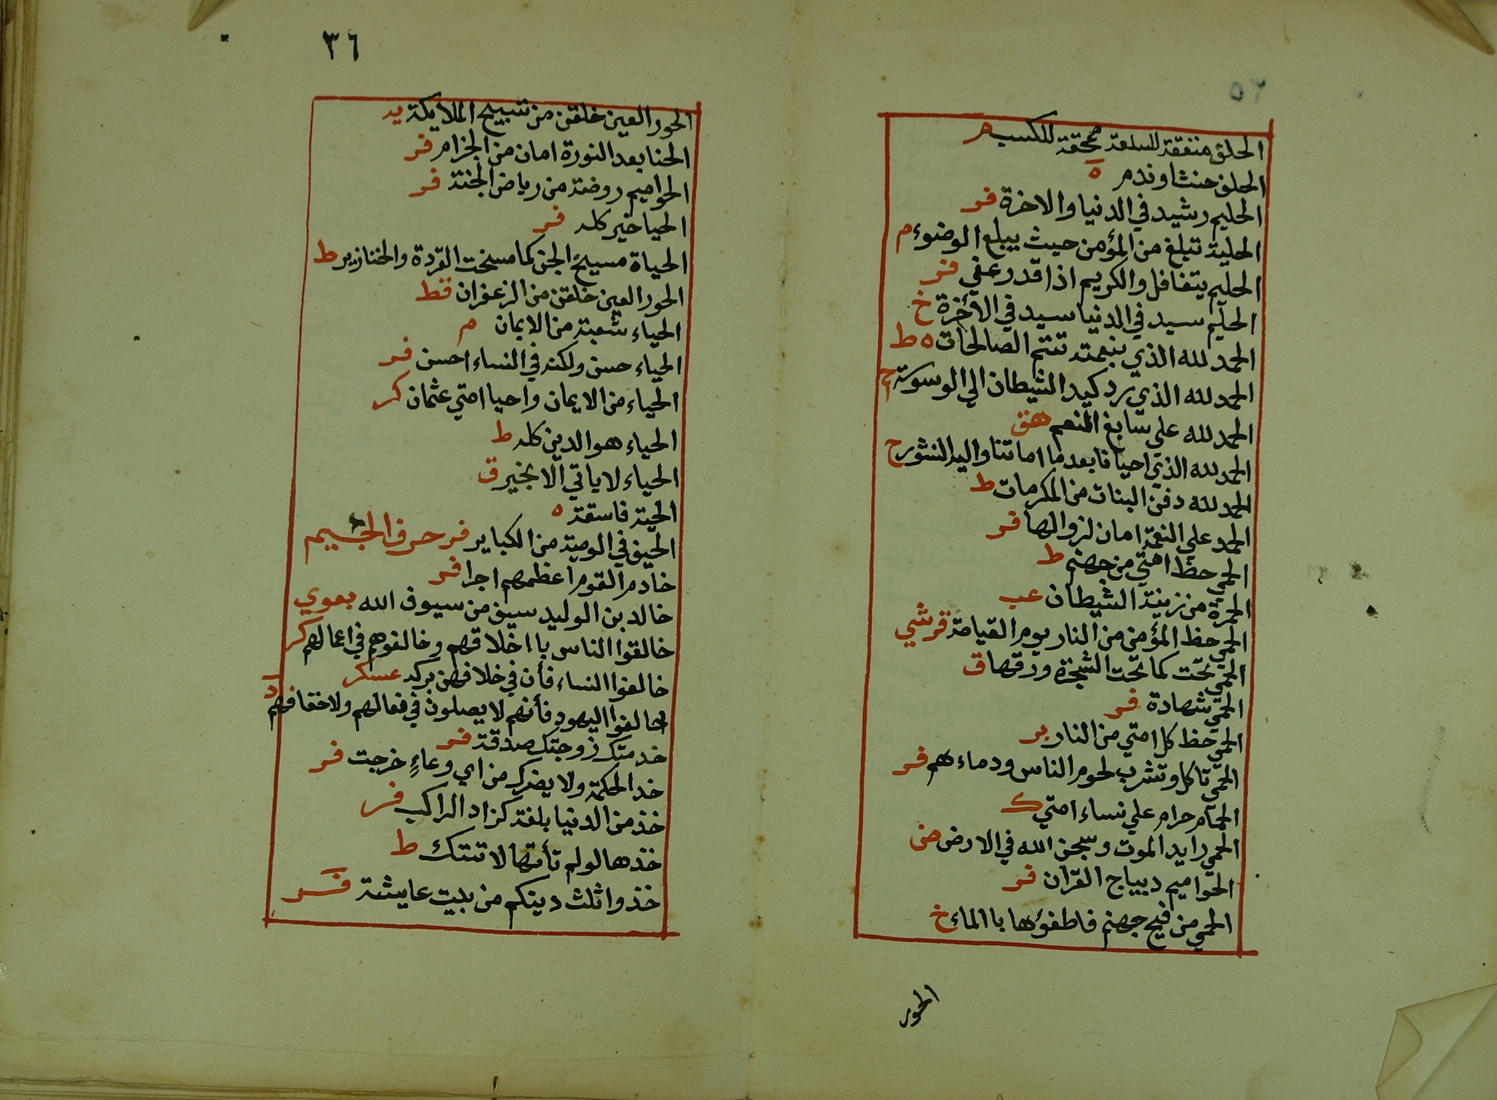 الحلف منفقة للسلعة ممحقة للكسب م
الحلف حنث او ندم ه
الحليم رشيد في الدنيا والاخرة فر
الحلية تبلغ من المؤمن حيث يبلغ الوضوء م
الحليم يتغافل والكريم اذا قدر عفي فر
الحليم سيد في الدنيا سيد في الآخرة خ
الحمد لله الذي بنعمته تتم الصالحات ه ط
الحمد لله الذي رد كيد الشيطان الي الوسوسة
الحمد لله علي سابغ النعم هق
الحمد لله الذي احيانا بعد ما اماتنا واليه النشور ح
الحمد لله دفن البنات من المكرمات ط
الحمد علي النعمة امان لزوالها فر
الحمي حظ امتي من جهنم ط
الحمرة من زينة الشيطان عب
الحمي حظ المؤمن من النار يوم القيامة قرشي
الحمي تحت كما تحت الشجرة ورقها ق
الحمي شهادة فر
الحمي حظ كل امتي من النار بر
الحمي تاكل وتشرب لحوم الناس ودماءهم فر
الحمام حرام علي نساء امتي ك
الحمي رايد الموت وسجن الله في الارض
الحواميم ديباج القران فر
الحمي من فيح جهنم فاطفوها باالماء خ
الحور
٣٦
الحور العين خلقن من تسبيح الملايكة يد
الحنا بعد النورة امان من الجزام فر
الحواميم روضة من رياض الجنة فر
الحيا خير كله فر
الحياة مسيخ الجن كما مسخت القردة والخنازير ط
الحور العين خلقن من الزعفران قط
الحياء شعبة من الايمان م
الحياء حسن ولكنه في النساء احسن فر
الحياء من الايمان واحيا امتي عثمان كر
الحياء هو الدين كله ط
الحياء لا ياتي الا بخير ق
الحية فاسقة ه
الحيف في الوصية من الكباير فر حرف الجيم
خادم القوم اعظمهم اجرا فر
خالد بن الوليد سيف من سيوف الله بغوي
خالقوا الناس باخلاقهم وخالفوهم في اعمالهم كر
خالفوا النساء فأن في خلافهن بركة عسكر
خالفوا اليهود فأنهم لا يصلون في نعالهم ولا خفافهم د
خدمتك زوجتك صدقة فر
خذ الحكمة ولا يضرك من اي وعاءٍ خرجت فر
خذ من الدنيا بلغة كزاد الراكب فر
خذها لو لم تأتها لاتتك ط
خذوا ثلث دينكم من بيت عايشة فر